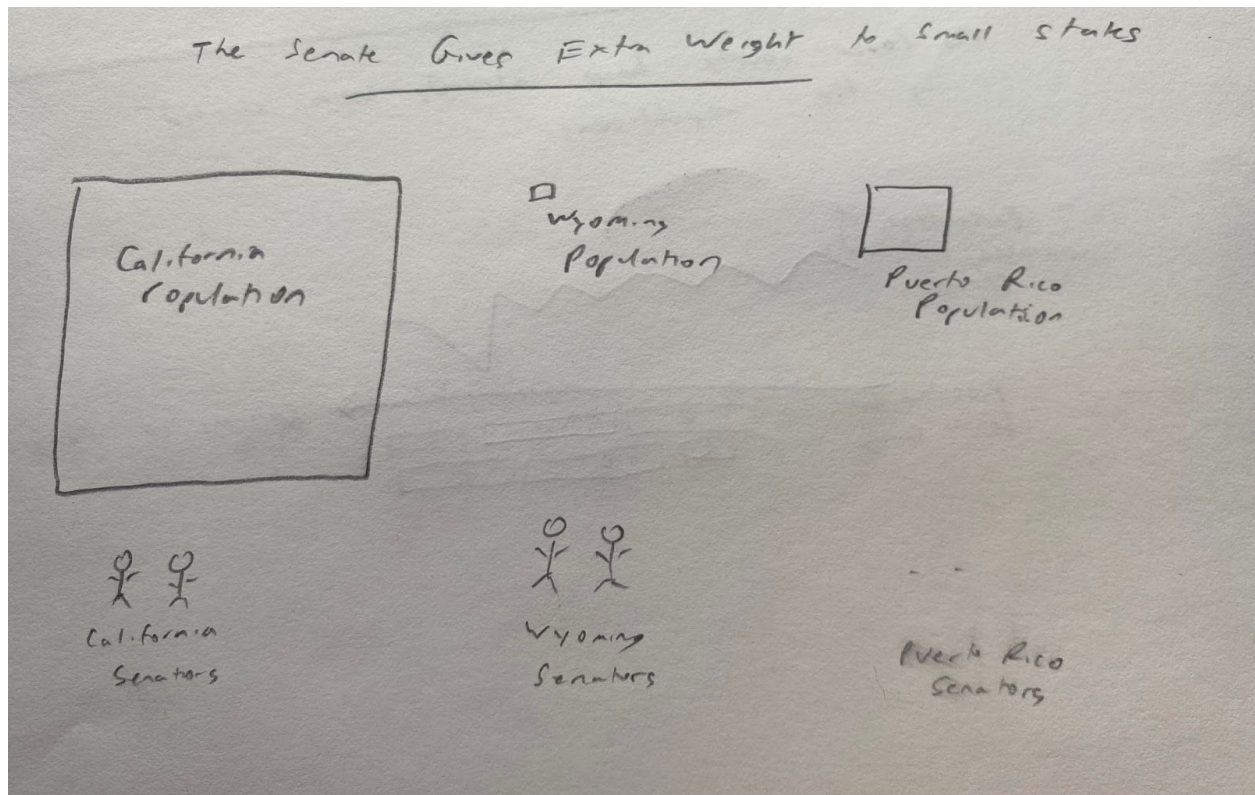 The Senate Gives Extra Weight to Small States
California
Population
Wyoming
Population
Puerto Rico
Population
California
Senators
Wyoming
Senators
Puerto Rico
Senators